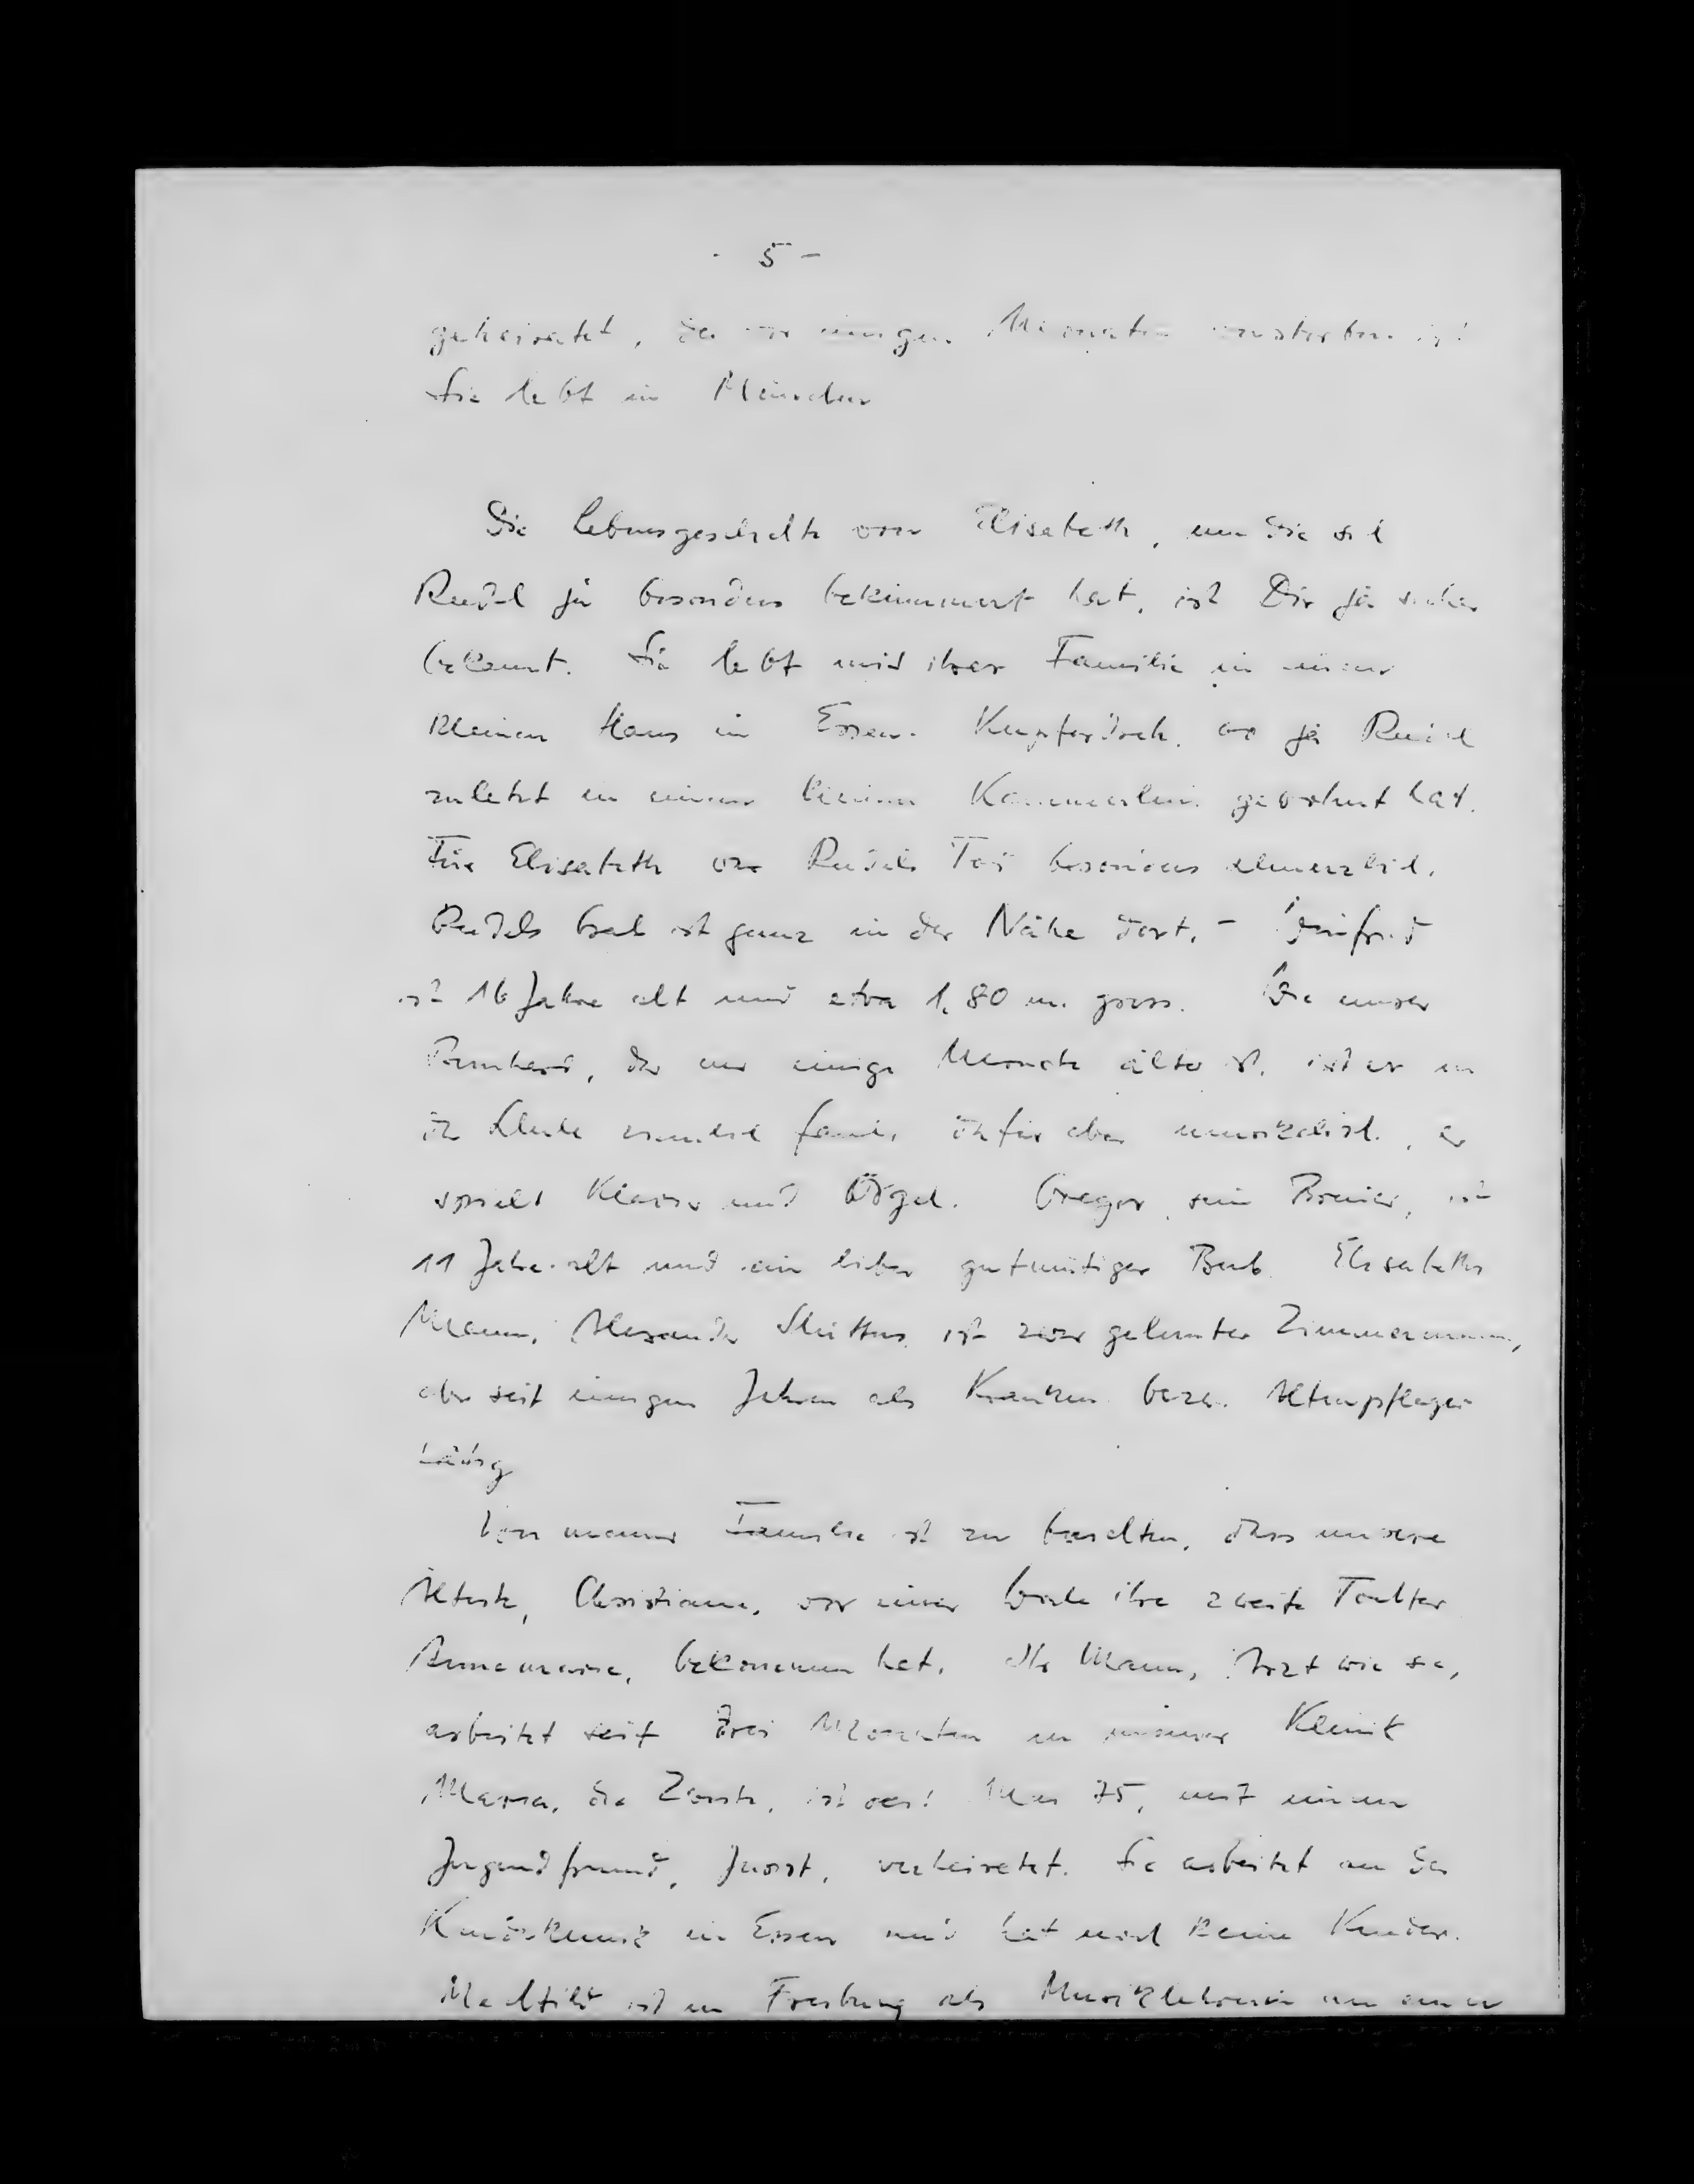 - 5 -
geheiratet, der vor einigen Monaten verstorben ist
Sie lebt in München
Die Lebensgeschichte von Elisabeth, um die sich
Rudel ja besonders bekümmert hat, ist Dir ja sicher
bekannt. Sie lebt mit ihrer Familie in einem
kleinen Haus in Essen-Kupferdreh, wo ja Rudel
zuletzt in einem kleinen Kämmerlein gewohnt hat.
Für Elisabeth war Rudels Tod besonders schmerzlich.
Rudels Grab ist ganz in der Nähe dort. - Winfrid
ist 16 Jahre alt und etwa 1,80 m gross. Wie unser
Bernhard, der nur einige Monate älter ist, ist er in
der Schule ziemlich faul, dafür aber musikalisch, er
spielt Klavier und Orgel. Gregor, sein Bruder, ist
11 Jahre alt und ein lieber gutmütiger Bub. Elisabeths
Mann, Alexander ist zwar gelernter Zimmermann,
aber seit einigen Jahren als Kranken- bezw. Altenpfleger
tätig
Von meiner Familie ist zu berichten, dass unsere
Älteste, Christiane, vor einer Woche ihre zweite Tochter
Annemarie, bekommen hat. Ihr Mann, Arzt wie sie,
arbeitet seit drei Monaten in meiner Klinik
Maria, die Zweite, ist seit Mai 75, mit einem
Jugendfreund, Joost, verheiratet. Sie arbeitet an der
Kinderklinik in Essen und hat noch keine Kinder.
Mechtild ist in Freiburg als Musiklehrerin an einer